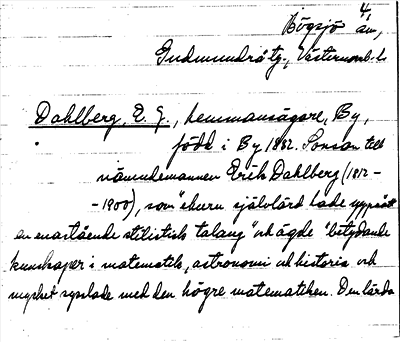 4,
Högsjö sn,
Gudmundrå tg., Västernorrl. l.
Dahlberg, E. G., hemmansägare, By,
född i By 1882. Sonson till
nämndemannen Erik Dahlberg (1812-
-1900), som "ehuru självlärd hade uppnått
en enastående stilistisk talang" och ägde "betydande
kunskaper i matematik, astronomi och historia och
mycket sysslade med den högre matematiken. Den lärda